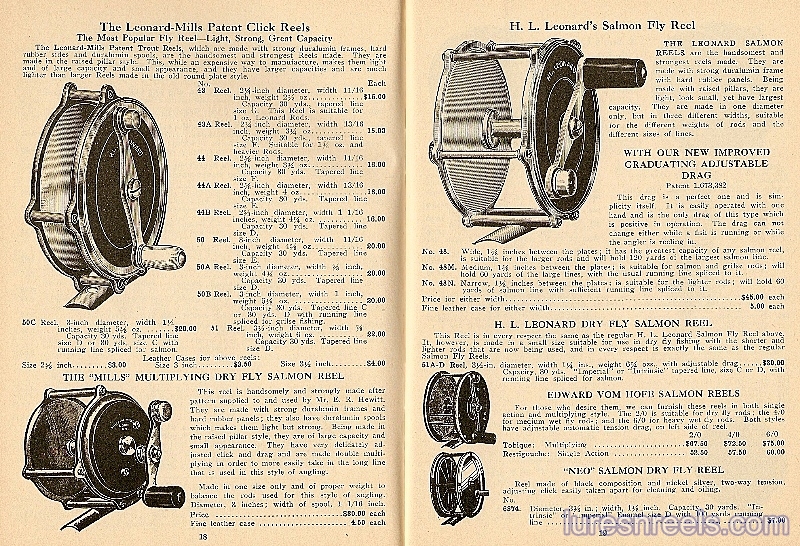 The Leonard-Mills Patent Click Reels
The Most Popular Fly Reel—Light, Strong, Great Capacity
The Leonard-Mills Patent Trout Reels, which are made with strong duralumin frames, hard
rubber sides and duralumin spools, are the handsomest and strongest Reels made. They are
made in the raised pillar style. This, while an expensive way to manufacture, makes them light
and of large capacity and small appearance, and they have larger capacities and are much
lighter than larger Reels made in the old round plate style.
No. Each
43 Reel. diameter, width 11/16
inch, weight oz. $15.00
Capacity 30 yds. Tapered line
size G. This Reel is suitable for
1 oz. Leonard Rods.
43A Reel. diameter, width 13/16
inch, weight oz. 15.00
Capacity 30 yds. tapered line
size F. Suitable for and
heavier Rods.
44 Reel. diameter, width 11/16
inch, weight oz. 16.00
Capacity 30 yds. Tapered line
size F.
44A Reel. diameter, width 13/16
inch, weight 4 oz. 16.00
Capacity 30 yds. Tapered line
size E.
44B Reel. diameter, width 1 1/16
inches, weight oz. 16.00
Capacity 30 yds. Tapered line
size D.
50 Reel. 3-inch diameter, width 11/16
inch, weight oz. 20.00
Capacity 30 yds. Tapered line
size E.
50A Reel. 3-inch diameter, width inch,
weight oz. 20.00
Capacity 30 yds. Tapered line
size D.
50B Reel. 3-inch diameter, width 1 inch,
weight oz. 20.00
Capacity 30 yds. Tapered line C
or 30 yds. D with running line
spliced for grilse fishing.
50C Reel. 3-inch diameter, width
inches, weight oz. $20.00
Capacity 30 yds. Tapered line
size B or 30 yds. size C with
running line spliced for salmon.
51 Reel. diameter, width
inch, weight 6 oz. 22.00
Capacity 30 yds. Tapered line
size D.
Leather Cases for above reels:
Size 2½ inch $3.00 Size 3 inch $3.50 Size 3¼ inch $4.00
THE "MILLS" MULTIPLYING DRY FLY SALMON REEL
This reel is handsomely and strongly made after
pattern supplied to and used by Mr. E. R. Hewitt.
They are made with strong duralumin frames and
hard rubber panels; they also have duralumin spools
which makes them light but strong. Being made in
the raised pillar style, they are of large capacity and
small appearance. They have very delicately ad-
justed click and drag and are made double multi-
plying in order to more easily take in the long line
that is used in this style of angling.
Made in one size only and of proper weight to
balance the rods used for this style of angling.
Diameter, 3 inches; width of spool, 1 1/16 inch.
Price $80.00 each
Fine leather case 4.50 each
18
H. L. Leonard's Salmon Fly Reel
THE LEONARD SALMON
REELS are the handsomest and
strongest reels made. They are
made with strong duralumin frame
with hard rubber panels. Being
made with raised pillars, they are
light, look small, yet have largest
capacity. They are made in one diameter
only, but in three different widths, suitable
for the different weights of rods and the
different sizes of lines.
WITH OUR NEW IMPROVED
GRADUATING ADJUSTABLE
DRAG
Patent 1,673,382
This drag is a perfect one and is sim-
plicity itself. It is easily operated with one
hand and is the only drag of this type which
is positive in operation. The drag can not
change either while a fish is running or while
the angler is reeling in.
No. 48. Wide, inches between the plates; it has the greatest capacity of any salmon reel,
is suitable for the larger rods and will hold 120 yards of the largest salmon line.
No. 48M. Medium, inches between the plates; is suitable for salmon and grilse rods; will
hold 60 yards of the large lines, with the usual running line spliced to it.
No. 48N. Narrow, inches between the plates; is suitable for the lighter rods; will hold 60
yards of salmon line with sufficient running line spliced to it.
Price for either width $45.00 each
Fine leather case for either width 5.00 each
H. L. LEONARD DRY FLY SALMON REEL
This Reel is in every respect the same as the regular H. L. Leonard Salmon Fly Reel above.
It, however, is made in a small size suitable for use in dry fly fishing with the shorter and
lighter rods that are now being used, and in every respect is exactly the same as the regular
Salmon Fly Reels.
51A-D Reel, diameter, width in., weight oz., with adjustable drag $30.00
Capacity, 30 yds. "Imperial" or "Intrinsic" tapered line, size C or D, with
running line spliced for salmon.
EDWARD VOM HOFE SALMON REELS
For those who desire them, we can furnish these reels in both single
action and multiplying style. The 2/0 is suitable for dry fly rods; the 4/0
for medium wet fly rods; and the 6/0 for heavy wet fly rods. Both styles
have adjustable automatic tension drag, on left side of reel.
2/0 4/0 6/0
Tobique: Multiplying $67.50 $72.50 $75.00
Restigouche: Single Action 52.50 57.50 60.00
"NEO" SALMON DRY FLY REEL
Reel made of black composition and nickel silver, two-way tension,
adjusting click easily taken apart for cleaning and oiling.
No.
Diameter, in.; width, inch. Capacity, 30 yards. "In-
trinsic" or "Imperial" Enamel size D with 100 yards running
line $7.00
19
luresnreels.com